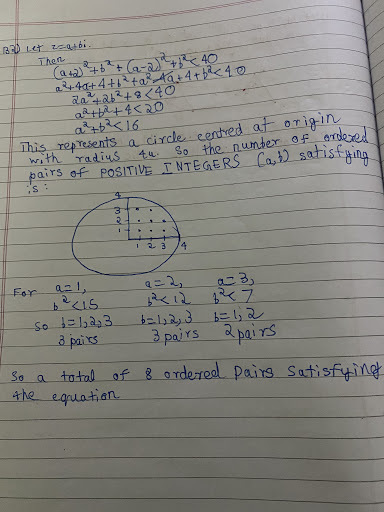 B2) Let z=a+bi.
Then
(a+2)²+b²+(a-2)²+b²<40
a²+4a+4+b²+a²-4a+4+b²<40
2a²+2b²+8<40
a²+b²+4<20
a²+b²<16
This represents a circle centred at origin
with radius 4u. So the number of ordered
pairs of POSITIVE INTEGERS (a,b) satisfying
is:
4
3
2
1
1 2 3 4
For a=1, a=2, a=3,
b²<15 b²<12 b²<7
So b=1,2,3 b=1,2,3 b=1,2
3 pairs 3 pairs 2 pairs
So a total of 8 ordered pairs satisfying
the equation